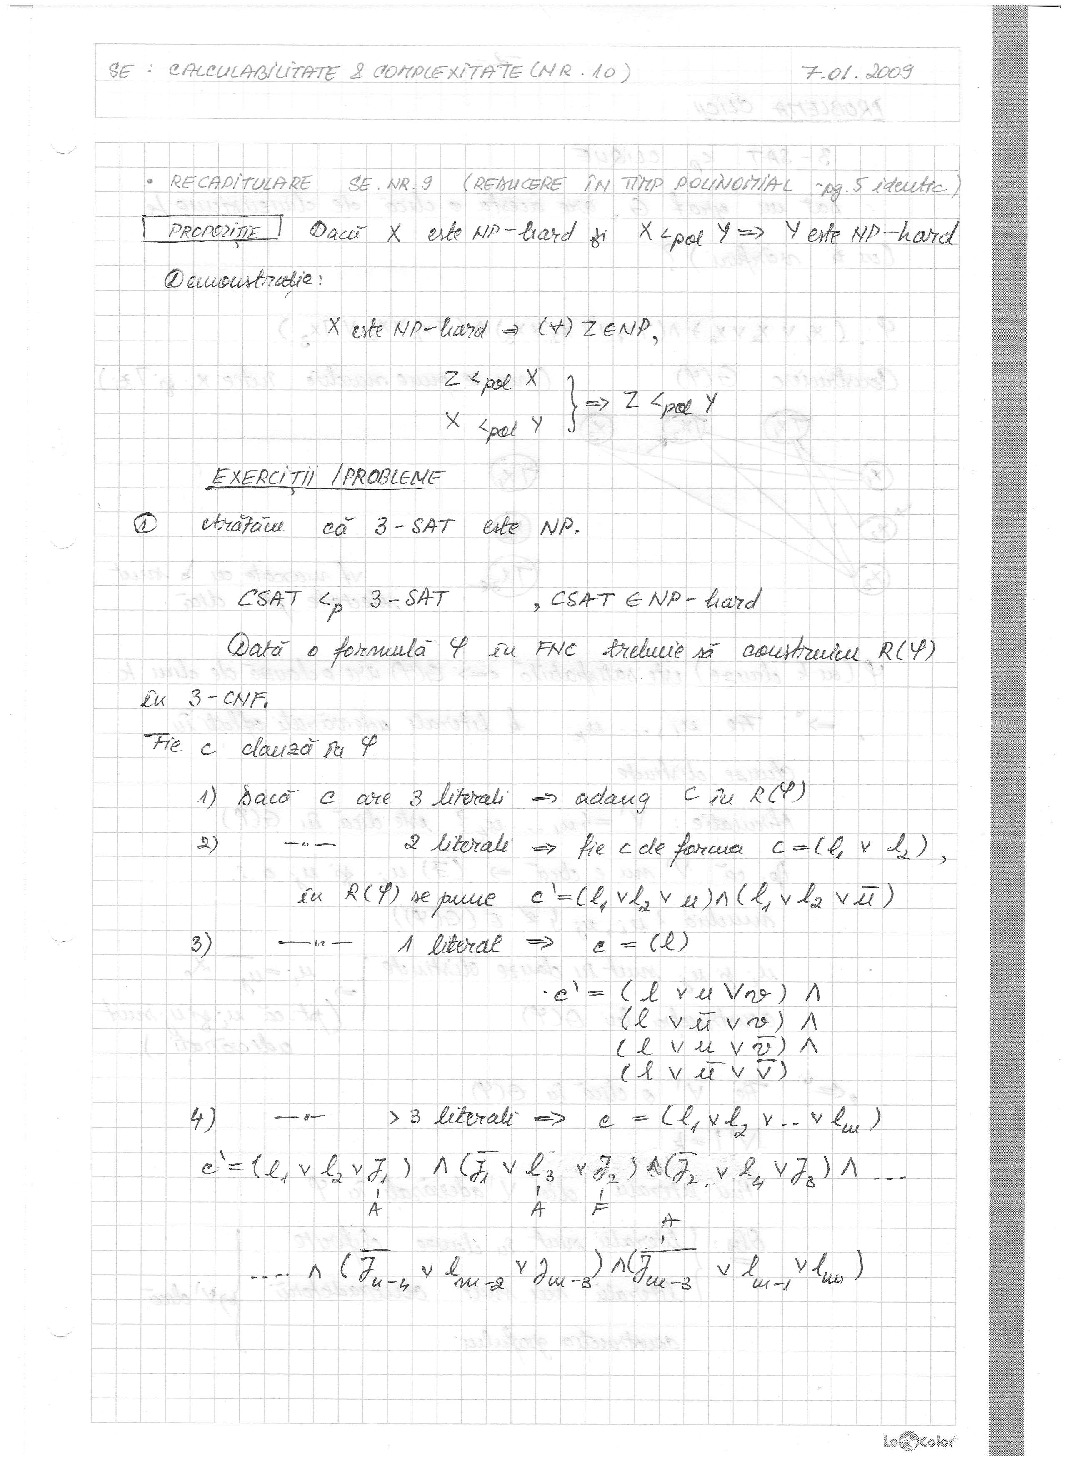 SE : CALCULABILITATE & COMPLEXITATE (NR. 10) 7.01.2009
• RECAPITULARE SE. NR. 9 (REDUCERE ÎN TIMP POLINOMIAL - pg. 5 identic)
PROPOZIȚIE Dacă X este NP-hard și X <pol Y => Y este NP-hard
Demonstrație:
X este NP-hard => (∀) Z ∈ NP,
Z <pol X
} => Z <pol Y
X <pol Y
EXERCIȚII / PROBLEME
① Arătăm că 3-SAT este NP.
CSAT <p 3-SAT , CSAT ∈ NP-hard
Dată o formulă φ în FNC trebuie să construim R(φ)
în 3-CNF.
Fie c clauză în φ
1) Dacă c are 3 literali => adaug c în R(φ)
2) —"— 2 literali => fie c de forma c = (l₁ ∨ l₂),
în R(φ) se pune c' = (l₁ ∨ l₂ ∨ u) ∧ (l₁ ∨ l₂ ∨ u̅)
3) —"— 1 literal => c = (l)
c' = (l ∨ u ∨ v) ∧
(l ∨ u̅ ∨ v) ∧
(l ∨ u ∨ v̅) ∧
(l ∨ u̅ ∨ v̅)
4) —"— > 3 literali => c = (l₁ ∨ l₂ ∨ .. ∨ lₘ)
c' = (l₁ ∨ l₂ ∨ J₁) ∧ (J̅₁ ∨ l₃ ∨ J₂) ∧ (J̅₂ ∨ l₄ ∨ J₃) ∧ ...
A A F
A
.... ∧ (J̅ₘ₋₄ ∨ lₘ₋₂ ∨ Jₘ₋₃) ∧ (J̅ₘ₋₃ ∨ lₘ₋₁ ∨ lₘ)
LogColor